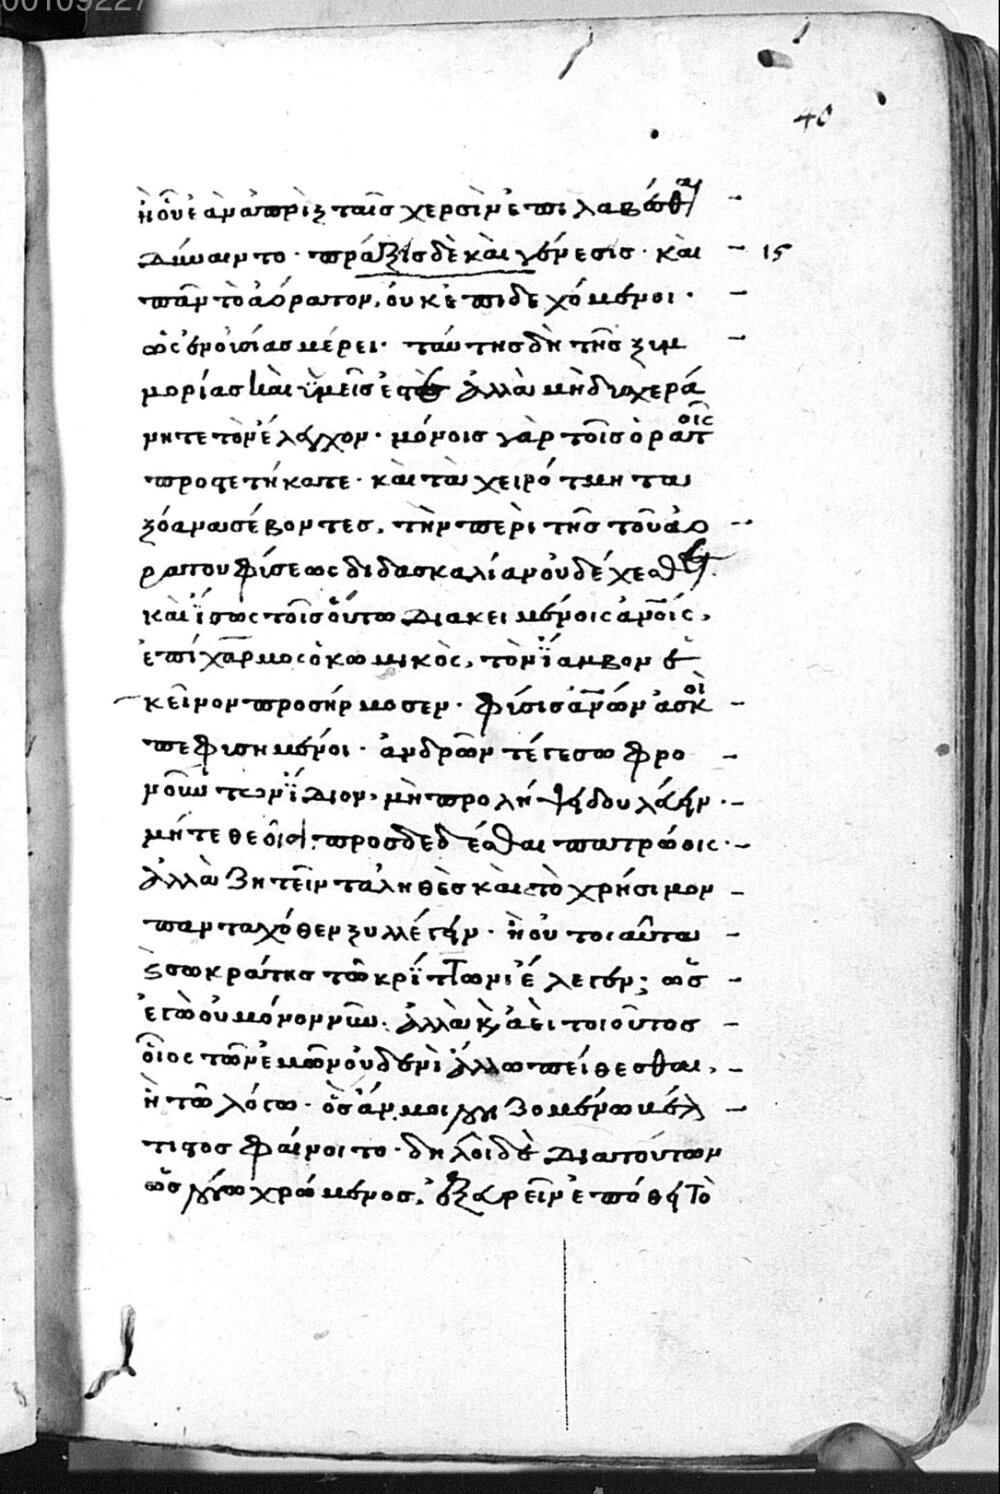 00109227
40
ἢ οὗ ἐὰν ἀπρὶξ ταῖς χερσὶν ἐπιλαβέσθαι
δύναιντο· πράξις δὲ καὶ γένεσις· καὶ 15
πᾶν τὸ ἀόρατον, οὐκ ἐπιδεχόμενοι·
ὡς ἐν οὐσίας μέρει· ταύτης δὴ τῆς ξυμ
μορίας καὶ ὑμεῖς ἐστέ ἀλλὰ μὴ δυσχερά
νητε τὸν ἔλεγχον· μόνοις γὰρ τοῖς ὁρατοῖς
προστετήκατε· καὶ τὰ χειρότμητα
ξόανα σέβοντες, τὴν περὶ τῆς τοῦ ἀο
ράτου φύσεως διδασκαλίαν οὐ δέχεσθε.
καὶ ἴσως τοῖς οὕτω διακειμένοις ἀνοις,
ἐπίχαρμος ὁ κωμικὸς, τὸν ἴαμβον ἐ
κεῖνον προσήρμοσεν· φύσις ἀνων ἀσκοὶ
πεφυσημένοι· ἀνδρῶν τέ γε σωφρο
νούντων ἴδιον, μὴ προλήψει δουλεύειν·
μήτε θεοῖσι προσδεδέσθαι πατρῴοις·
ἀλλὰ ζητεῖν τἀληθὲς καὶ τὸ χρήσιμον
πανταχόθεν ξυλλέγειν· ἢ οὐ τοιαῦτα
ὁ σωκράτης τῷ κρίτωνι ἔλεγεν; ὡς
ἐγὼ οὐ μόνον νῦν. ἀλλὰ κ ἀεὶ τοιοῦτος
οἷος τῶν ἐμῶν οὐδενὶ ἄλλω πείθεσθαι,
ἢ τῷ λόγω· ὃς ἄν μοι λογιζομένω βέλ
τιστος φαίνοιτο· δηλοῖ δὲ διὰ τούτων
ὡς λόγω χρώμενος, ἐξ ἀρετῆς ἐπόθει τὸ